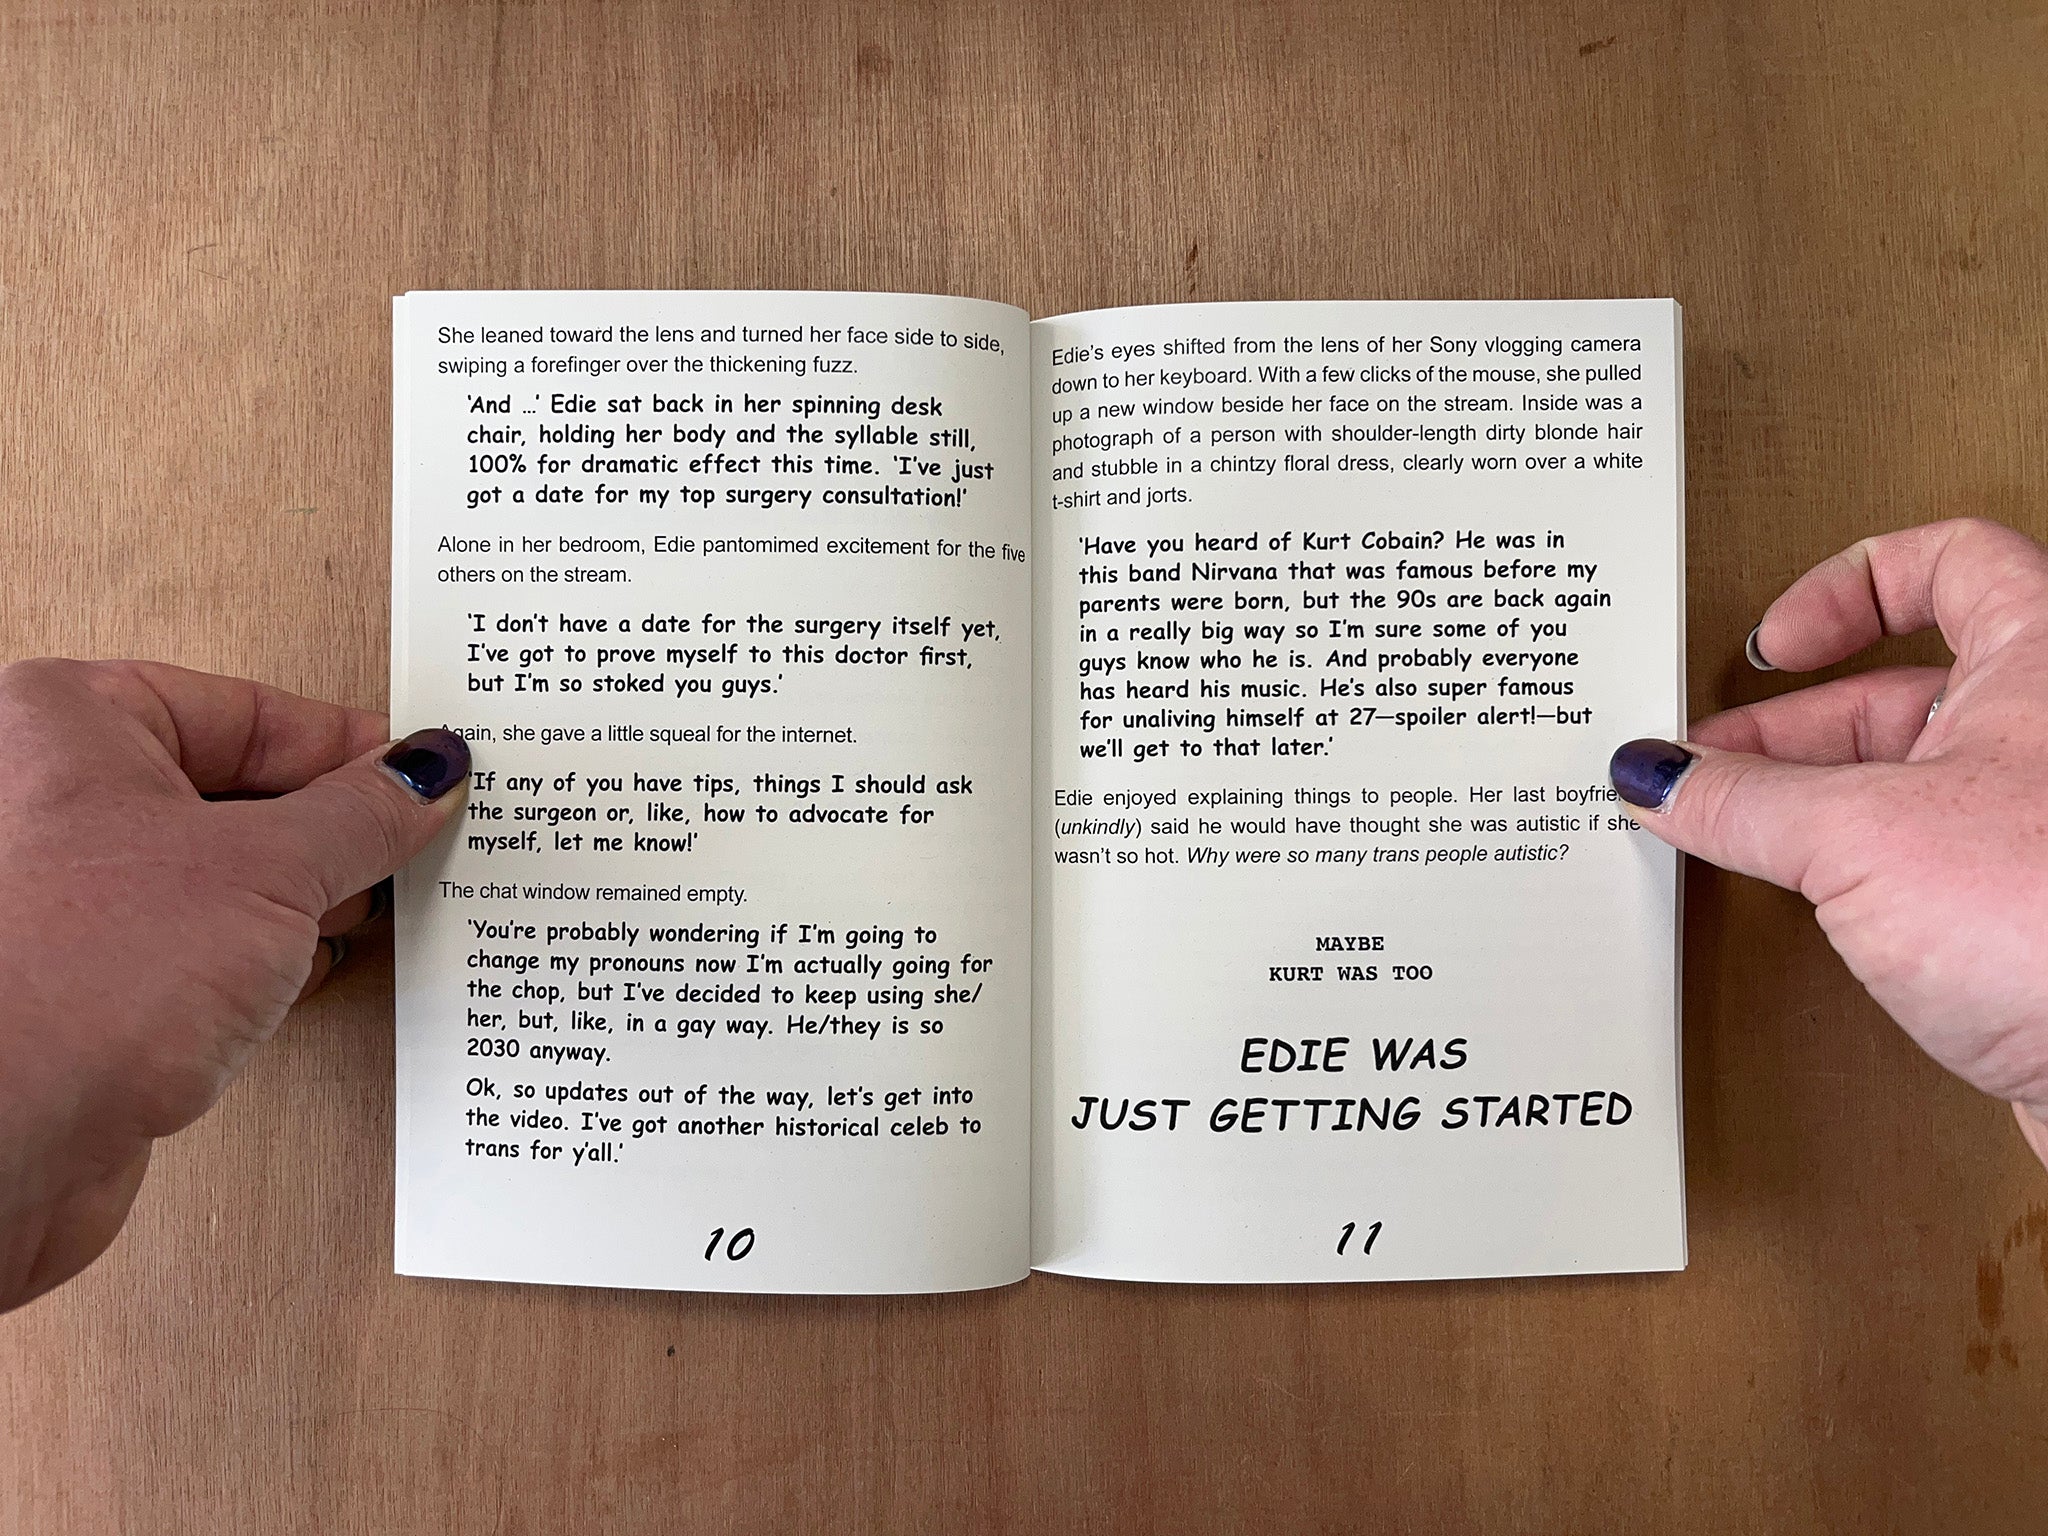 She leaned toward the lens and turned her face side to side,
swiping a forefinger over the thickening fuzz.
‘And …’ Edie sat back in her spinning desk
chair, holding her body and the syllable still,
100% for dramatic effect this time. ‘I’ve just
got a date for my top surgery consultation!’
Alone in her bedroom, Edie pantomimed excitement for the five
others on the stream.
‘I don’t have a date for the surgery itself yet,
I’ve got to prove myself to this doctor first,
but I’m so stoked you guys.’
Again, she gave a little squeal for the internet.
‘If any of you have tips, things I should ask
the surgeon or, like, how to advocate for
myself, let me know!’
The chat window remained empty.
‘You’re probably wondering if I’m going to
change my pronouns now I’m actually going for
the chop, but I’ve decided to keep using she/
her, but, like, in a gay way. He/they is so
2030 anyway.
Ok, so updates out of the way, let’s get into
the video. I’ve got another historical celeb to
trans for y’all.’
10
Edie’s eyes shifted from the lens of her Sony vlogging camera
down to her keyboard. With a few clicks of the mouse, she pulled
up a new window beside her face on the stream. Inside was a
photograph of a person with shoulder-length dirty blonde hair
and stubble in a chintzy floral dress, clearly worn over a white
t-shirt and jorts.
‘Have you heard of Kurt Cobain? He was in
this band Nirvana that was famous before my
parents were born, but the 90s are back again
in a really big way so I’m sure some of you
guys know who he is. And probably everyone
has heard his music. He’s also super famous
for unaliving himself at 27—spoiler alert!—but
we’ll get to that later.’
Edie enjoyed explaining things to people. Her last
(unkindly) said he would have thought she was autistic if she
wasn’t so hot. Why were so many trans people autistic?
MAYBE
KURT WAS TOO
EDIE WAS
JUST GETTING STARTED
11